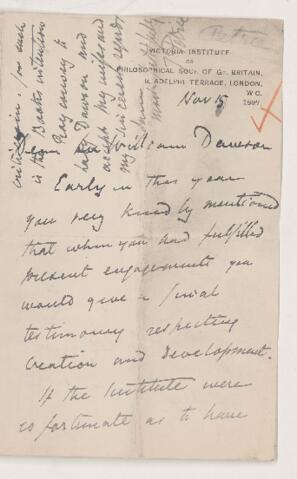 VICTORIA INSTITUTE
OR
PHILOSOPHICAL SOCY. OF GT. BRITAIN,
8, ADELPHI TERRACE, LONDON,
W.C.
Nov 5 1897
Sir William Dawson
Early in this year
you very kindly mentioned
that when you had fulfilled
present engagements you
would give a final
testimony respecting
Creation and Development.
If the Institute were
so fortunate as to have
is the Books intention
Lady Dawson and
accept my
my sincerest regards